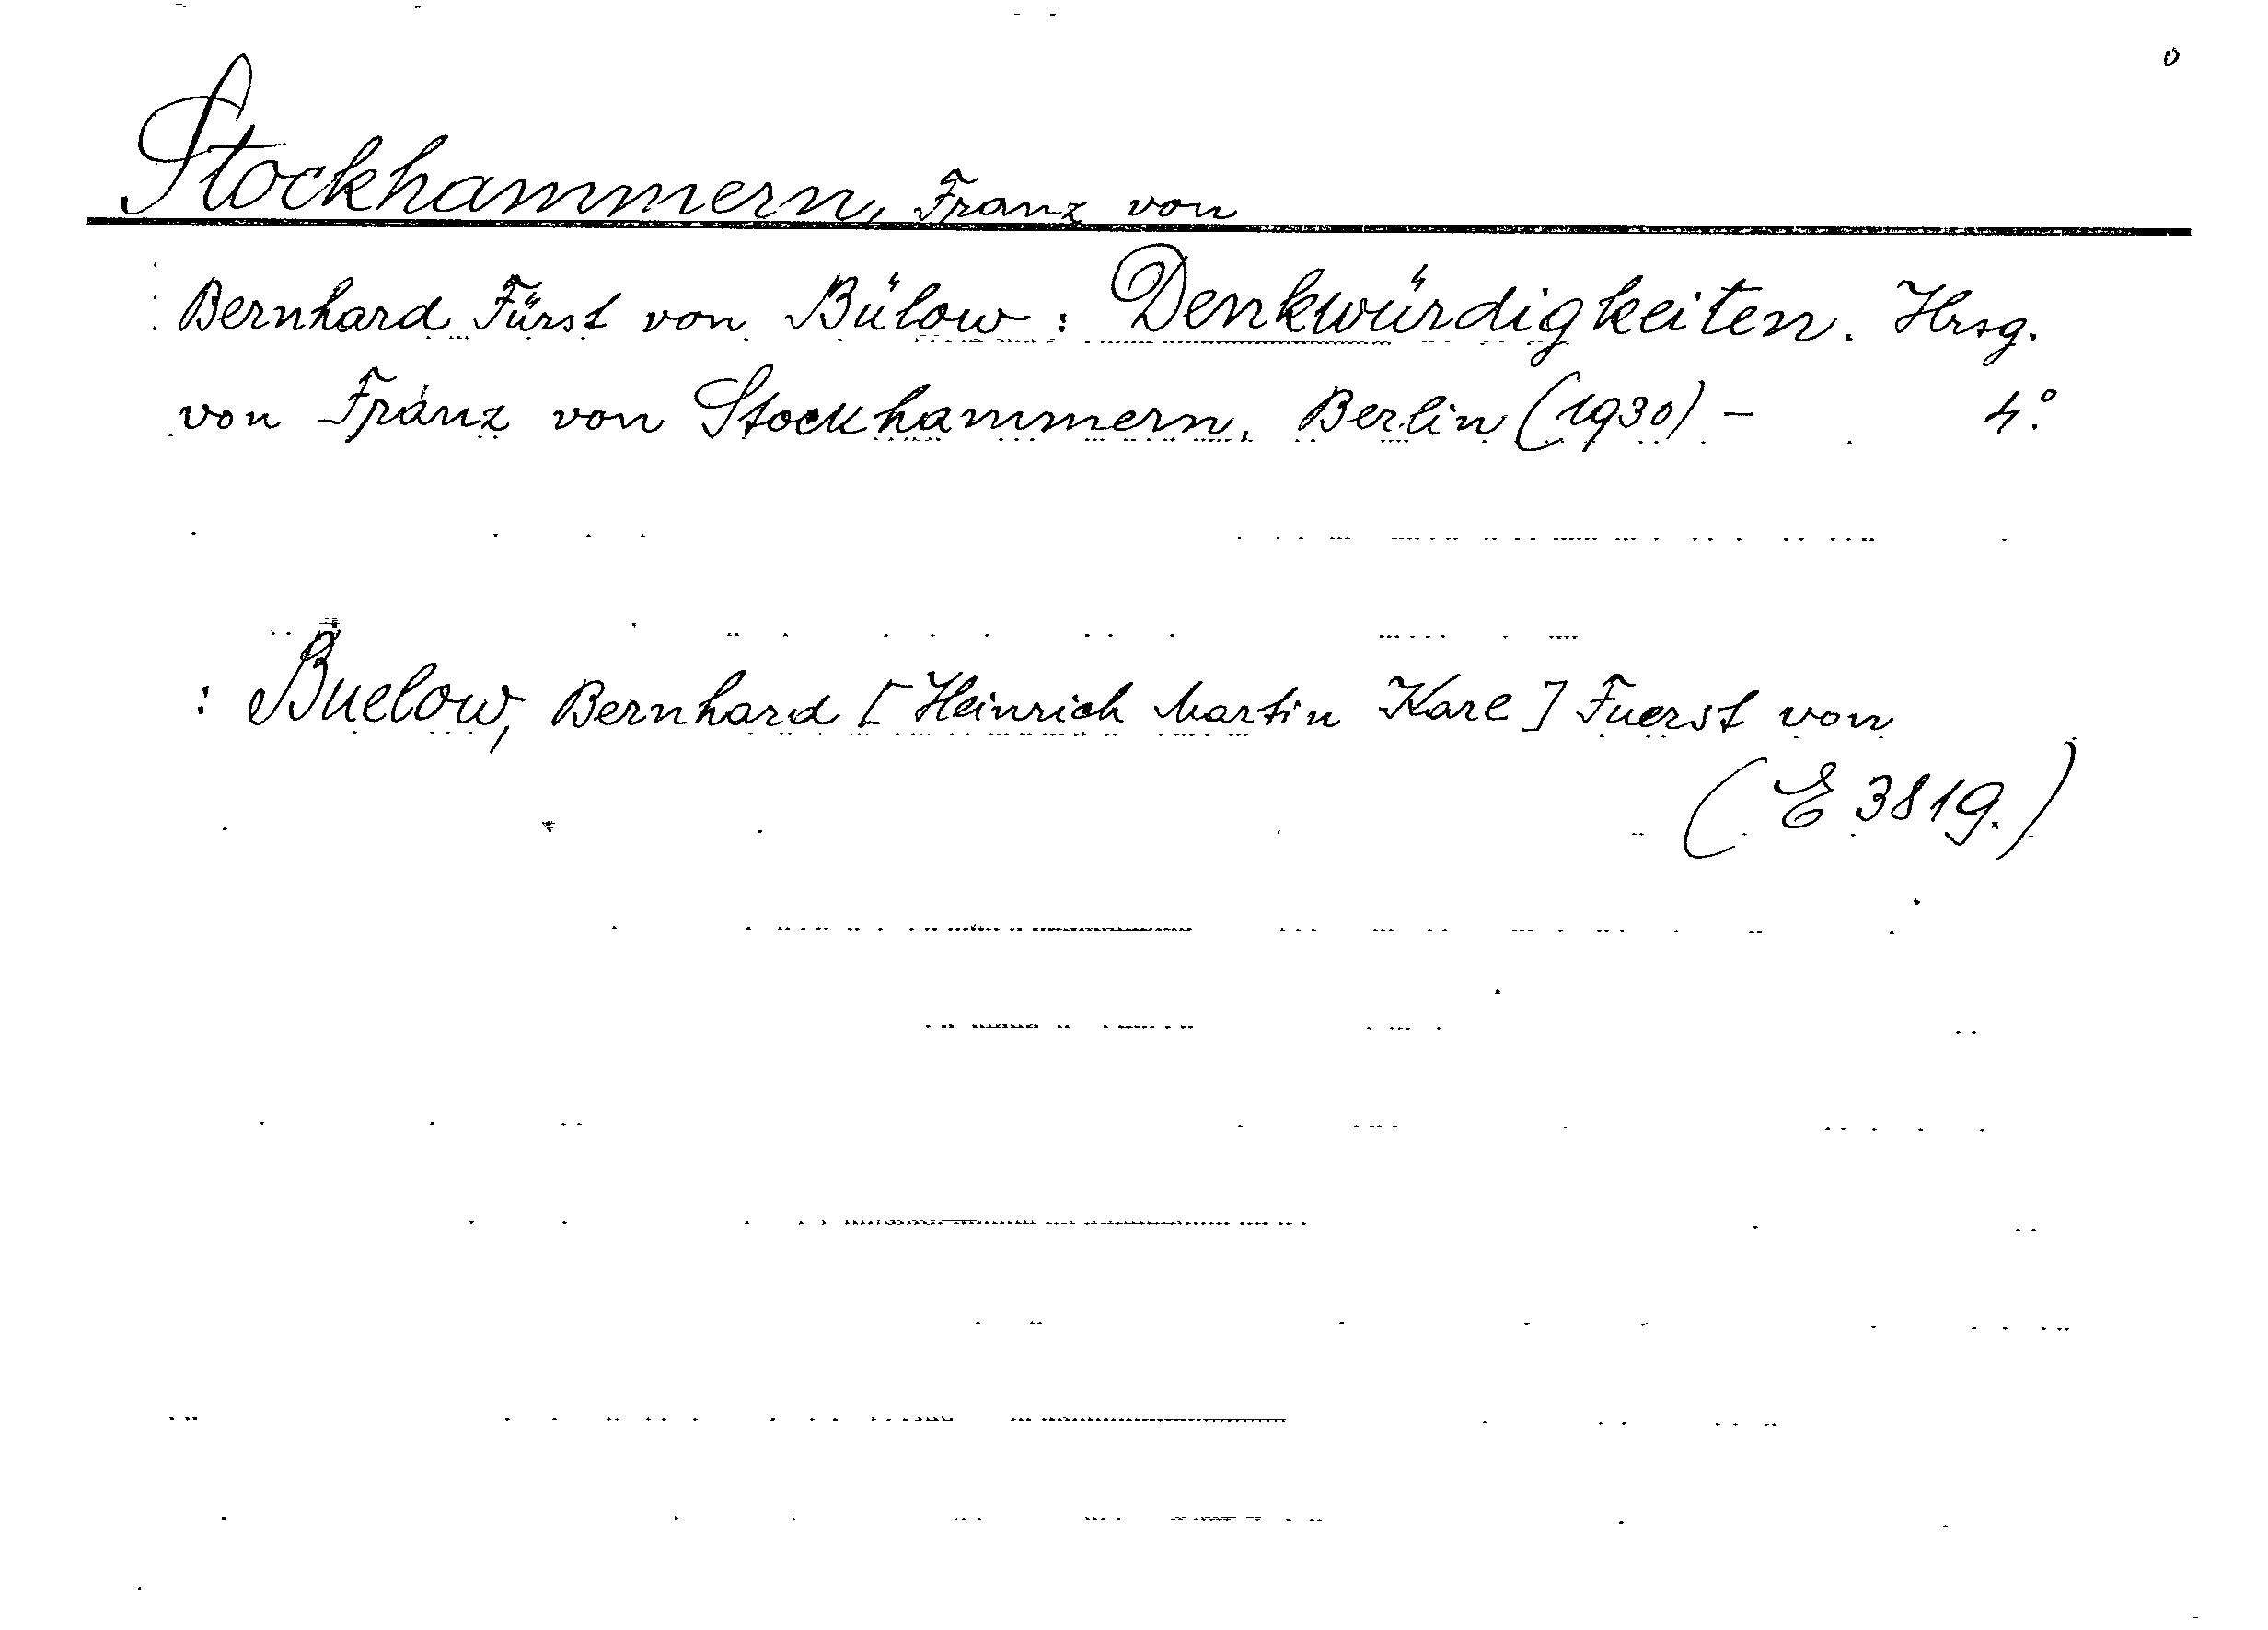 Stockhammern, Franz von
Bernhard Fürst von Bülow: Denkwürdigkeiten. Hrsg.
von Franz von Stockhammern. Berlin (1930) - 4°.
: Buelow, Bernhard [Heinrich Martin Karl] Fuerst von
(E 3819.)